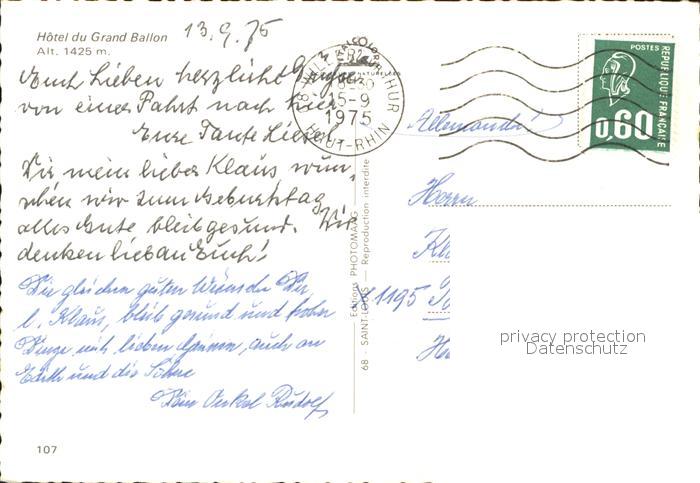 Hôtel du Grand Ballon
Alt. 1425 m.
13.9.75
Euch Lieben herzliche Grüße
von einer Fahrt nach hier
Eure Tante Liesel
Dir mein lieber Klaus, wün-
schen wir zum Geburtstag
alles Gute bleib gesund. Wir
denken lieb an Euch!
Die gleichen guten Wünsche Dir,
l. Klaus, bleib gesund und froher
Dinge mit lieben Grüssen, auch an
Edith und die Söhne
Dein Onkel Rudolf
107
68 - SAINT-LOUIS - Reproduction interdite
Editions PHOTOMAAG
THUR
15-9
1975
HAUT-RHIN
POSTES
REPUBLIQUE FRANÇAISE
0,60
Herrn
Kl
1195
privacy protection
Datenschutz